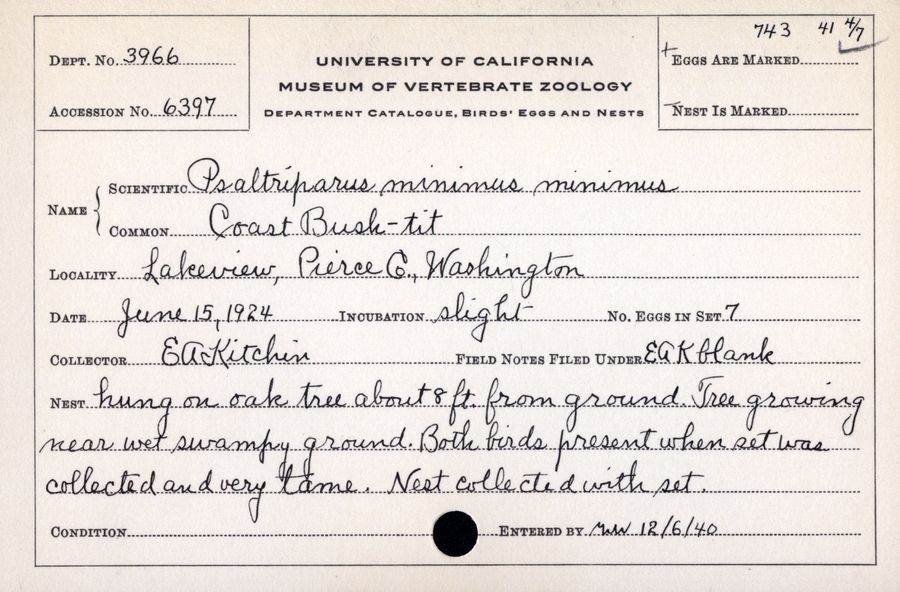 743 41 4/7
Dept. No. 3966
UNIVERSITY OF CALIFORNIA
+ Eggs Are Marked
MUSEUM OF VERTEBRATE ZOOLOGY
Accession No. 6397
Department Catalogue, Birds' Eggs and Nests
Nest Is Marked
Name { Scientific Psaltriparus minimus minimus
Common Coast Bush-tit
Locality Lakeview, Pierce Co., Washington
Date June 15, 1924 Incubation slight No. Eggs in Set 7
Collector EAKitchin Field Notes Filed Under EAK blank
Nest hung on oak tree about 8 ft. from ground. Tree growing
near wet swampy ground. Both birds present when set was
collected and very tame. Nest collected with set.
Condition Entered by 12/6/40